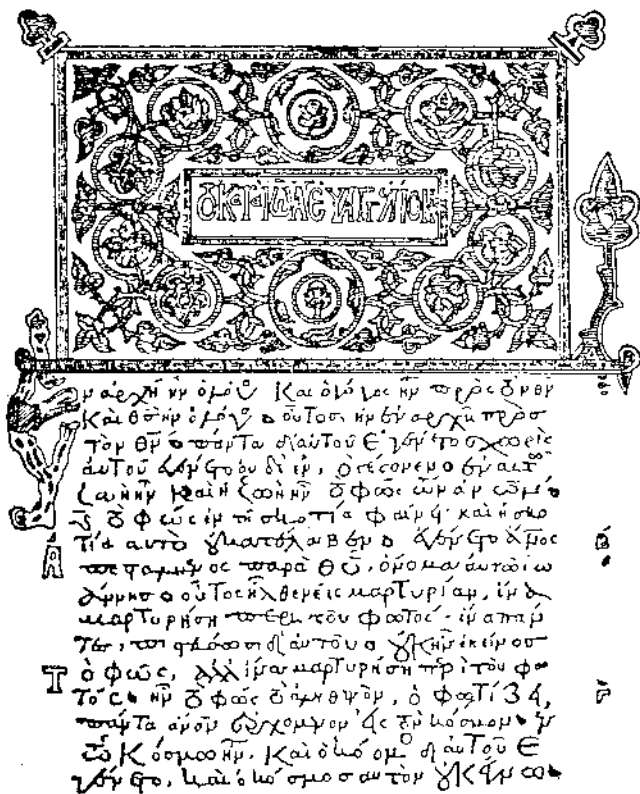 ΤΟ ΚΑΤΑ ΙΩΑ ΕΥΑΓΓΕΛΙΟΝ
Ἐν ἀρχῇ ἦν ὁ λόγος καὶ ὁ λόγος ἦν πρὸς τὸν θν
καὶ θς ἦν ὁ λόγος. οὗτος ἦν ἐν ἀρχῇ πρὸσ
τὸν θν. πάντα δι αὐτοῦ ἐγένετο. χωρὶς
αὐτοῦ ἐγένετο οὐδὲ ἕν, ὃ γέγονεν. ἐν αὐτῶ
ζωὴ ἦν καὶ ἡ ζωὴ ἦν τὸ φῶς τῶν ἀνων.
καὶ τὸ φῶς ἐν τῇ σκοτία φαίνει καὶ ἡ σκο
τία αὐτὸ οὐ κατέλαβεν. ἐγένετο ἄνος
ἀπεσταλμένος παρὰ θῦ, ὄνομα αὐτῶ ἰω
άννησ. οὗτος ἦλθεν εἰς μαρτυρίαν, ἵνα
μαρτυρήση περὶ τοῦ φωτός. ἵνα πάν
τες, πιστεύσωσι δι αὐτοῦ. οὐκ ἦν ἐκεῖνοσ
τὸ φῶς, ἀλλ ἵνα μαρτυρήση περὶ τοῦ φω
τός. ἦν τὸ φῶς τὸ ἀληθινὸν, ὃ φωτίζει,
πάντα ἄνον ἐρχόμενον εἰς τὸν κόσμον. ἐν
τῶ κόσμω ἦν, καὶ ὁ κόσμος δι αὐτοῦ ἐ
γένετο, καὶ ὁ κόσμοσ αὐτὸν οὐκ ἔγνω.